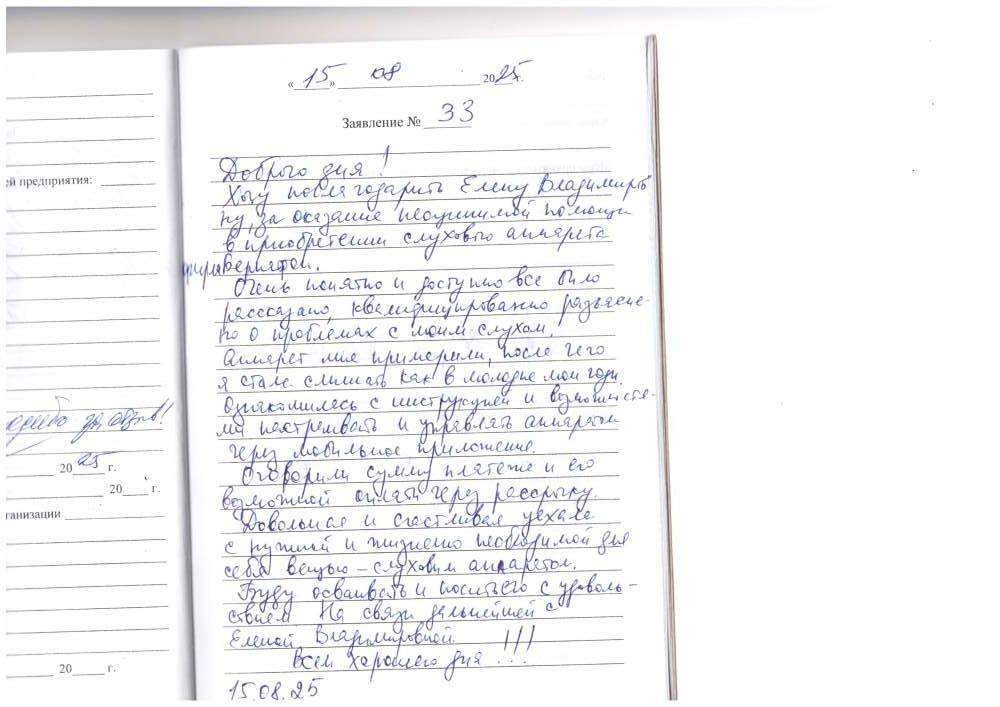 «15» 08 2025 г.
Заявление № 33
Доброго дня!
Хочу поблагодарить Елену Владимиров
ну, за оказание неоценимой помощи
в приобретении слухового аппарата
Очень понятно и доступно все было
рассказано, квалифицированно разъясне-
но о проблемах с моим слухом.
Аппарат мне примерили, после чего
я стала слышать как в молодые мои годы.
Ознакомилась с инструкцией и возможностя-
ми настраивать и управлять аппаратом
через мобильное приложение.
Оговорили сумму платежа и его
возможной оплаты через рассрочку.
Довольная и счастливая уехала
с нужной и жизнено необходимой для
себя вещью – слуховым аппаратом.
Буду осваивать и носить его с удоволь-
ствием. На связи дальнейшей с
Еленой Владимировной.
Всем хорошего дня !!!
15.08.25
ей предприятия:
за отзыв!
2025 г.
20 г.
ганизации
20 г.